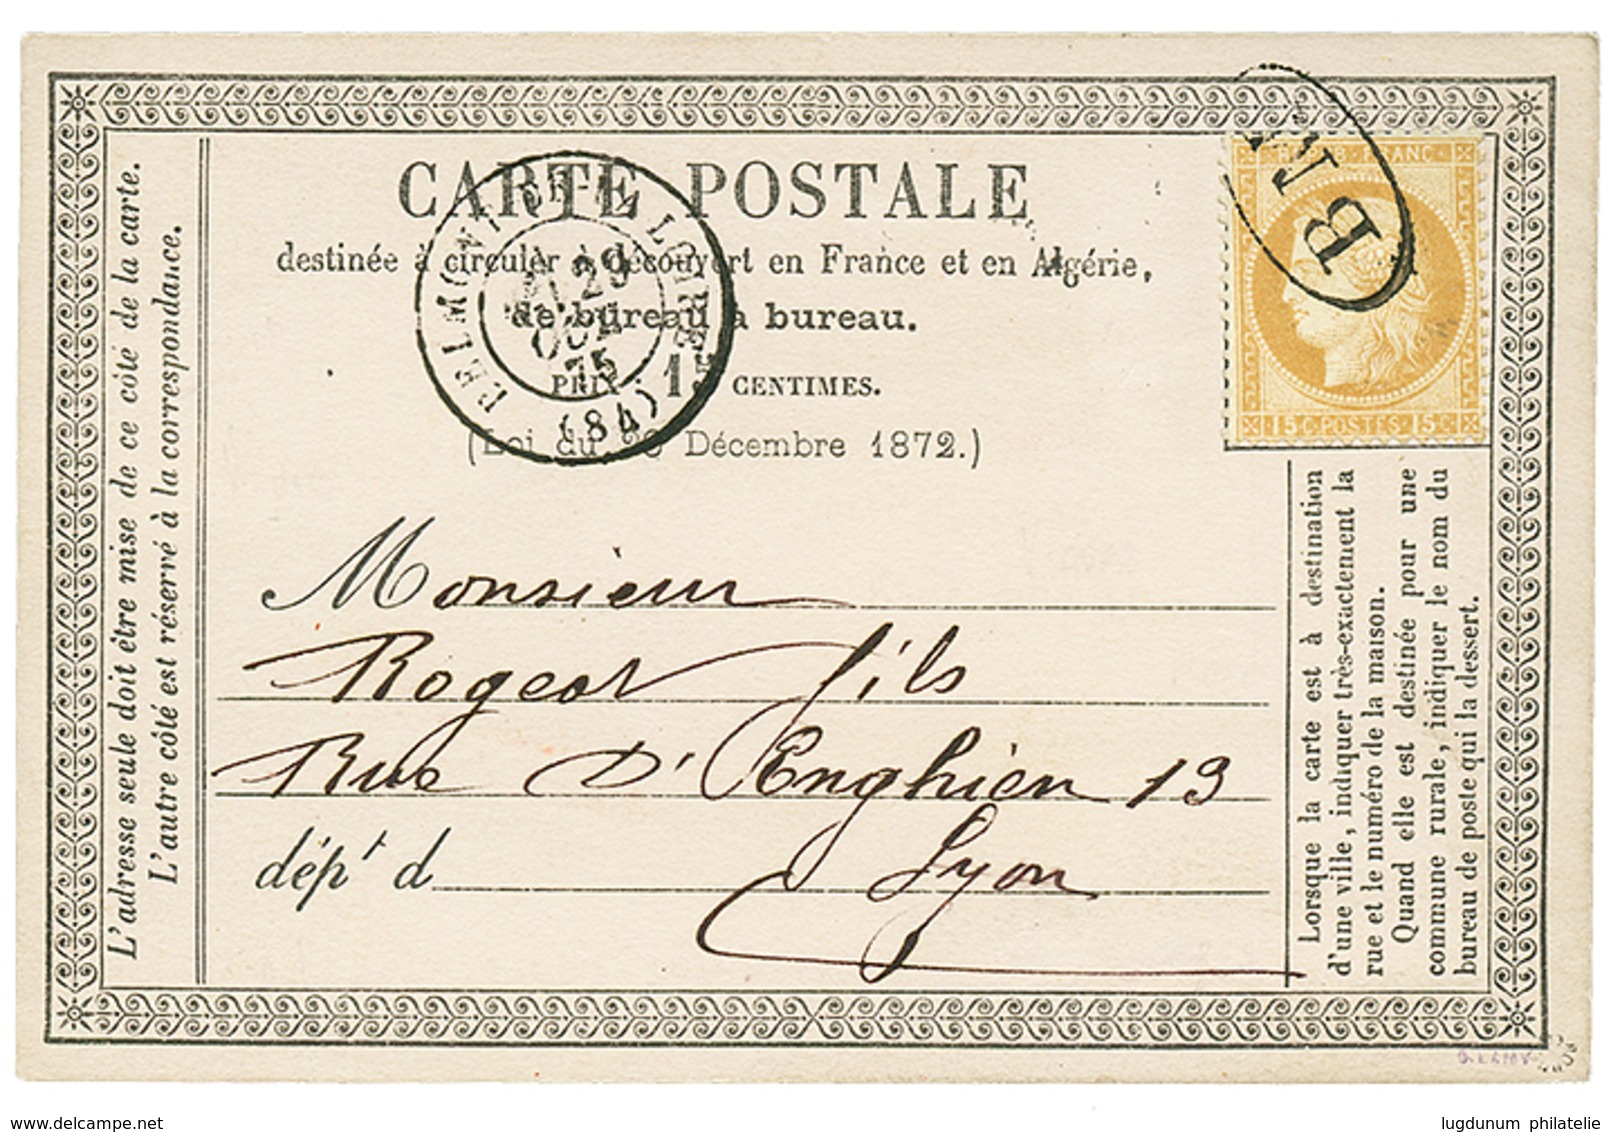 CARTE POSTALE
destinée à circuler à découvert en France et en Algérie,
de bureau à bureau.
PRIX : 15 CENTIMES.
(Loi du 20 Décembre 1872.)
BELMONT-DE-LA-LOIRE
29
OCT
75
(84)
BM
FRANC
15 C. POSTES 15 C.
L'adresse seule doit être mise de ce côté de la carte.
L'autre côté est réservé à la correspondance.
Monsieur
Rogeat fils
Rue D'Enghien 13
dép.t d Lyon
Lorsque la carte est à destination
d'une ville, indiquer très-exactement la
rue et le numéro de la maison.
Quand elle est destinée pour une
commune rurale, indiquer le nom du
bureau de poste qui la dessert.
delcampe.net
lugdunum philatelie